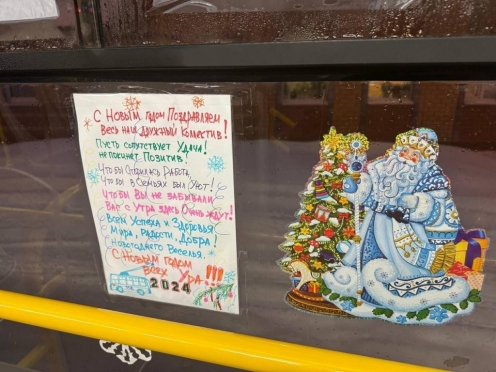 С Новым годом Поздравляем
Весь наш дружный Коллектив!
Пусть сопутствует Удача!
Не покинет Позитив!
Чтобы Спорилась Работа,
Чтобы в Семьях был Уют!
Чтобы Вы не забывали
Вас с Утра здесь Очень ждут!
Всем Успеха и Здоровья
Мира, Радости, Добра!
Новогоднего Веселья.
С Новым годом
Всех Ура!!!
2024